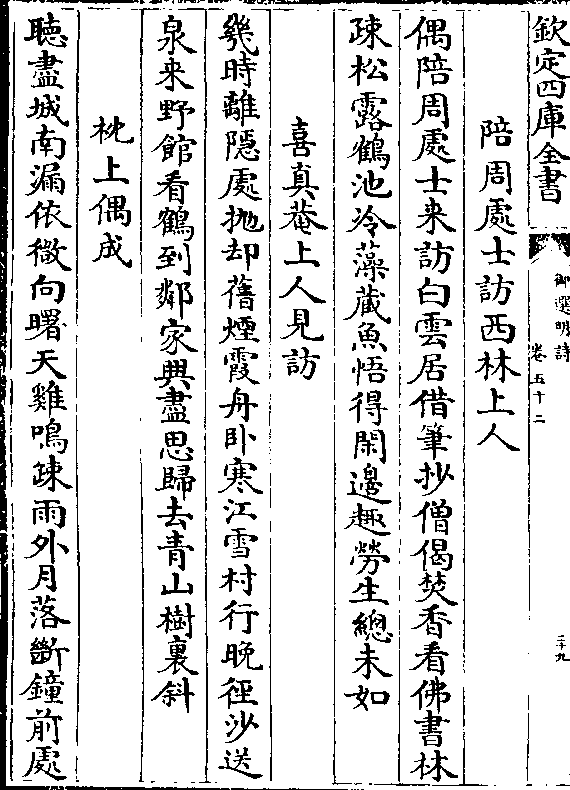 欽定四庫全書
御選明詩
卷五十二
二十九
陪周處士訪西林上人
偶陪周處士来訪白雲居借筆抄僧偈焚香看佛書林
疎松露鶴池冷藻藏魚悟得閑邊趣勞生總未如
喜真菴上人見訪
幾時離隱處抛却舊煙霞舟卧寒江雪村行晚徑沙送
泉来野館看鶴到鄰家興盡思歸去青山樹裏斜
枕上偶成
聽盡城南漏依微向曙天雞鳴疎雨外月落斷鐘前處